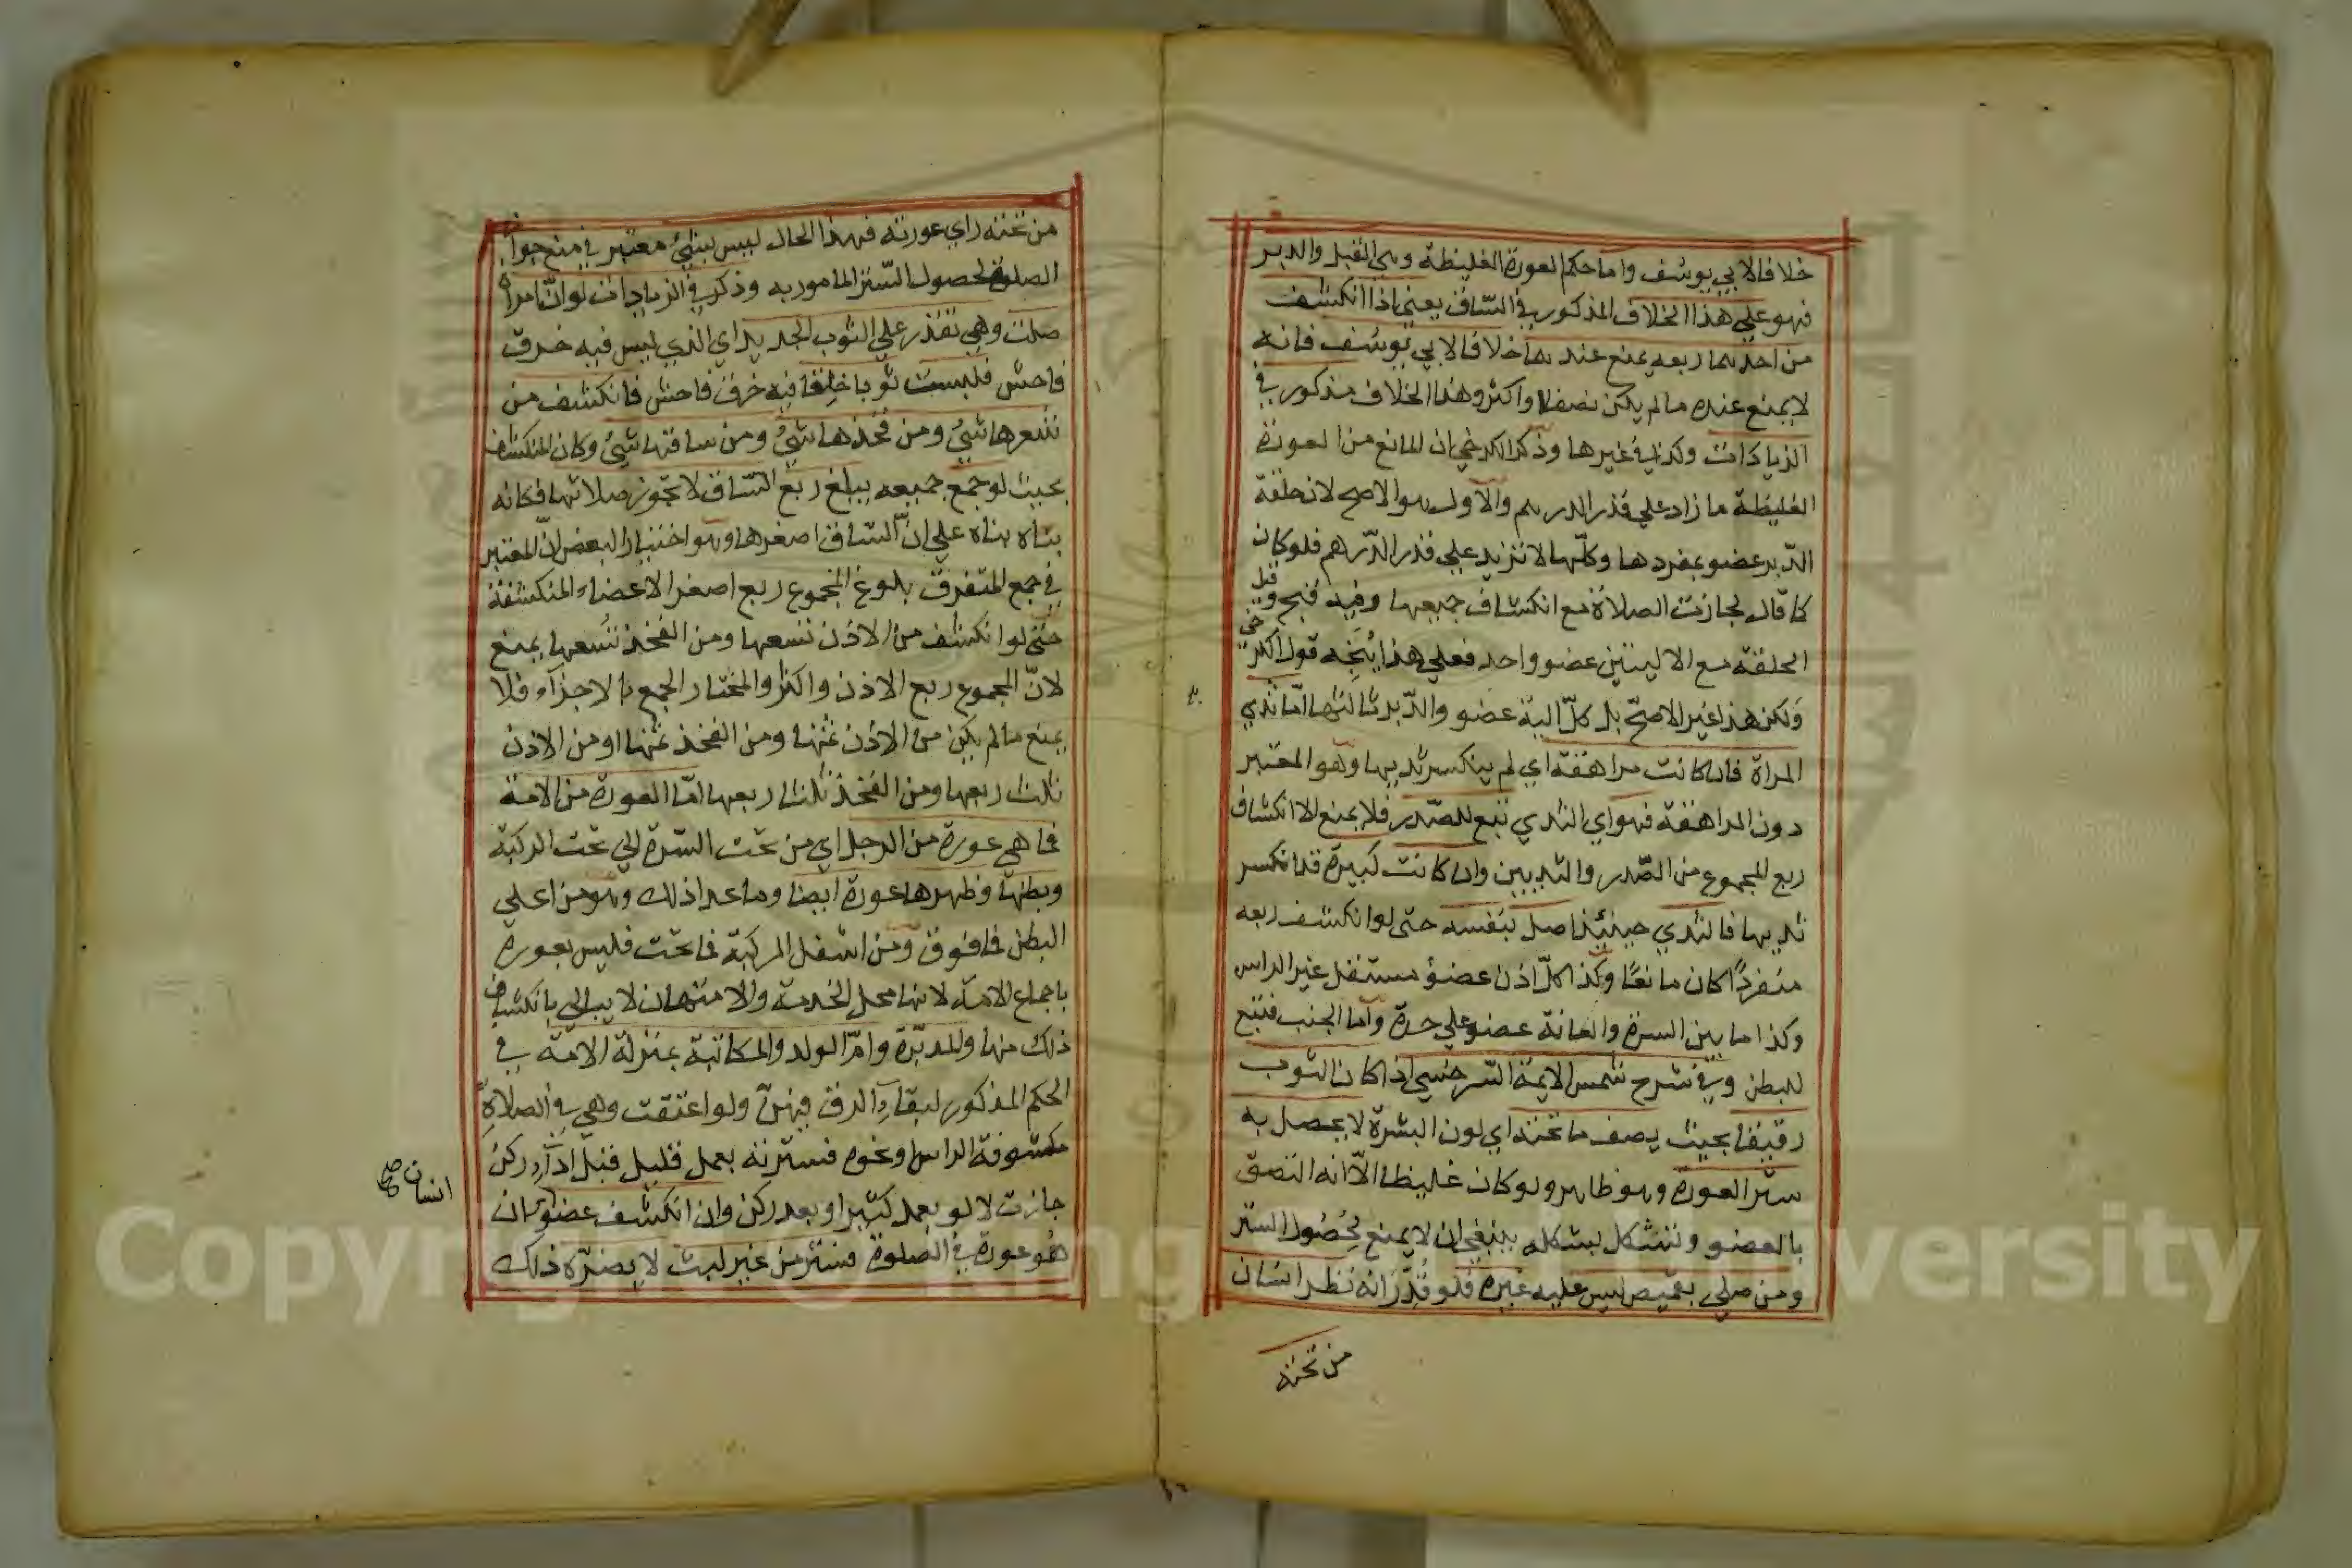 خلافا لابي يوسف واما حكم العورة الغليظة وهي القبل والدبر
فهو علي هذا الخلاف المذكور في الساق يعني اذا انكشف
من احدهما ربعه يمنع عندهما خلافا لابي يوسف فانه
لا يمنع عنده ما لم يكن نصفا او اكثر وهذا الخلاف مذكور في
الزيادات وكذا في غيرها وذكر الكرخي ان المانع من العورة
الغليظة ما زاد علي قدر الدرهم والاول هو الاصح لان حلقة
الدّبر عضو بمفردها وكلّها لا تزيد علي قدر الدّرهم فلو كان
كما قال لجازت الصلاة مع انكشاف جميعها وفيه قبح وقيل
الحلقة مع الاليتين عضو واحد فعلي هذا يتّجه قول الكرخي
ولكن هذا غير الاصحّ بل كلّ الية عضو والدّبر ثالثها امّا ثدي
المراة فان كانت مراهقة اي لم ينكسر ثديها وهو المعتبر
دون المراهقة فهو اي الثدي تبع للصّدر فلا يمنع الا انكشاف
ربع المجموع من الصّدر والثديين وان كانت كبيرة قد انكسر
ثديها فالثدي حينئذ اصل بنفسه حتى لو انكشف ربعه
منفردًا كان مانعًا وكذا كلّ اذن عضوٌ مستقل غير الراس
وكذا ما بين السرة والعانة عضو علي حدة وامّا الجنب فتبع
للبطن وفي شرح شمس الايمة السّرخسي اذا كان الثوب
رقيقا بحيث يصف ما تحته اي لون البشرة لا يحصل به
ستر العورة وهو ظاهر ولو كان غليظا الّا انه التصق
بالعضو وتشكل بشكله ينبغي ان لا يمنع لحُصُول الستر
ومن صلي بقميص ليس عليه غيره فلو قُدّر انه نظر انسان
من تحته
من تحته راي عورته فهذا الحال ليس بشيء معتبر في منع جواز
الصلوة لحصول السّتر المامور به وذكر في الزيادات لو انّ امراة
صلت وهي تقدر علي الثوب الجديد اي الذي ليس فيه خرق
فاحش فلبست ثوبا خلقا فيه خرق فاحش فانكشف من
شعرها شيئ ومن فخذها شيئ ومن ساقها شيئ وكان المنكشف
بحيث لو جمع جميعه يبلغ ربع السّاق لا تجوز صلاتها فكانه
بناه بناه علي انّ السّاق اصغرها وهو اختيار البعض انّ المعتبر
في جمع المتفرق بلوغ المجموع ربع اصغر الاعضاء المنكشفة
حتّى لو انكشف من الاذن تسعها ومن الفخذ تسعها يمنع
لانّ المجموع ربع الاذن واكثر والمختار الجمع بالاجزاء فلا
يمنع ما لم يكن من الاذن ثمنها ومن الفخذ ثمنها او من الاذن
ثلث ربعها ومن الفخذ ثلثا ربعها امّا العورة من الامة
فما هي عورة من الرجل اي من تحت السّرة الي تحت الركبة
وبطنها وظهرها عورة ايضا وما عدا ذلك وهو من اعلي
البطن فما فوق ومن اسفل الركبة فما تحت فليس بعورة
باجماع الامة لانها محل الخدمة والامتهان لا يبالي بانكشاف
ذلك منها والمدبّرة وامّ الولد والمكاتبة بمنزلة الامة في
الحكم المذكور لبقاء الرق فيهنّ ولو اعتقت وهي في الصلاة
مكشوفة الراس ونحوه فسترته بعمل قليل قبل اداء ركن
جازت لا لو بعمل كثير او بعد ركن وان انكشف عضو ان
هو عورة في الصلوة فستر من غير لبث لا يضرّه ذلك
انسان صح
Copyright © King University